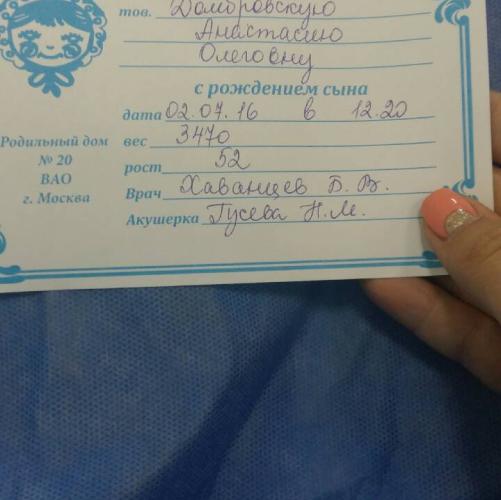 тов. Домбровскую
Анастасию
Олеговну
с рождением сына
дата 02.07.16 в 12.20
вес 3470
рост 52
Врач Хаванцев Б. В.
Акушерка Гусева Н.М.
Родильный дом
№ 20
ВАО
г. Москва